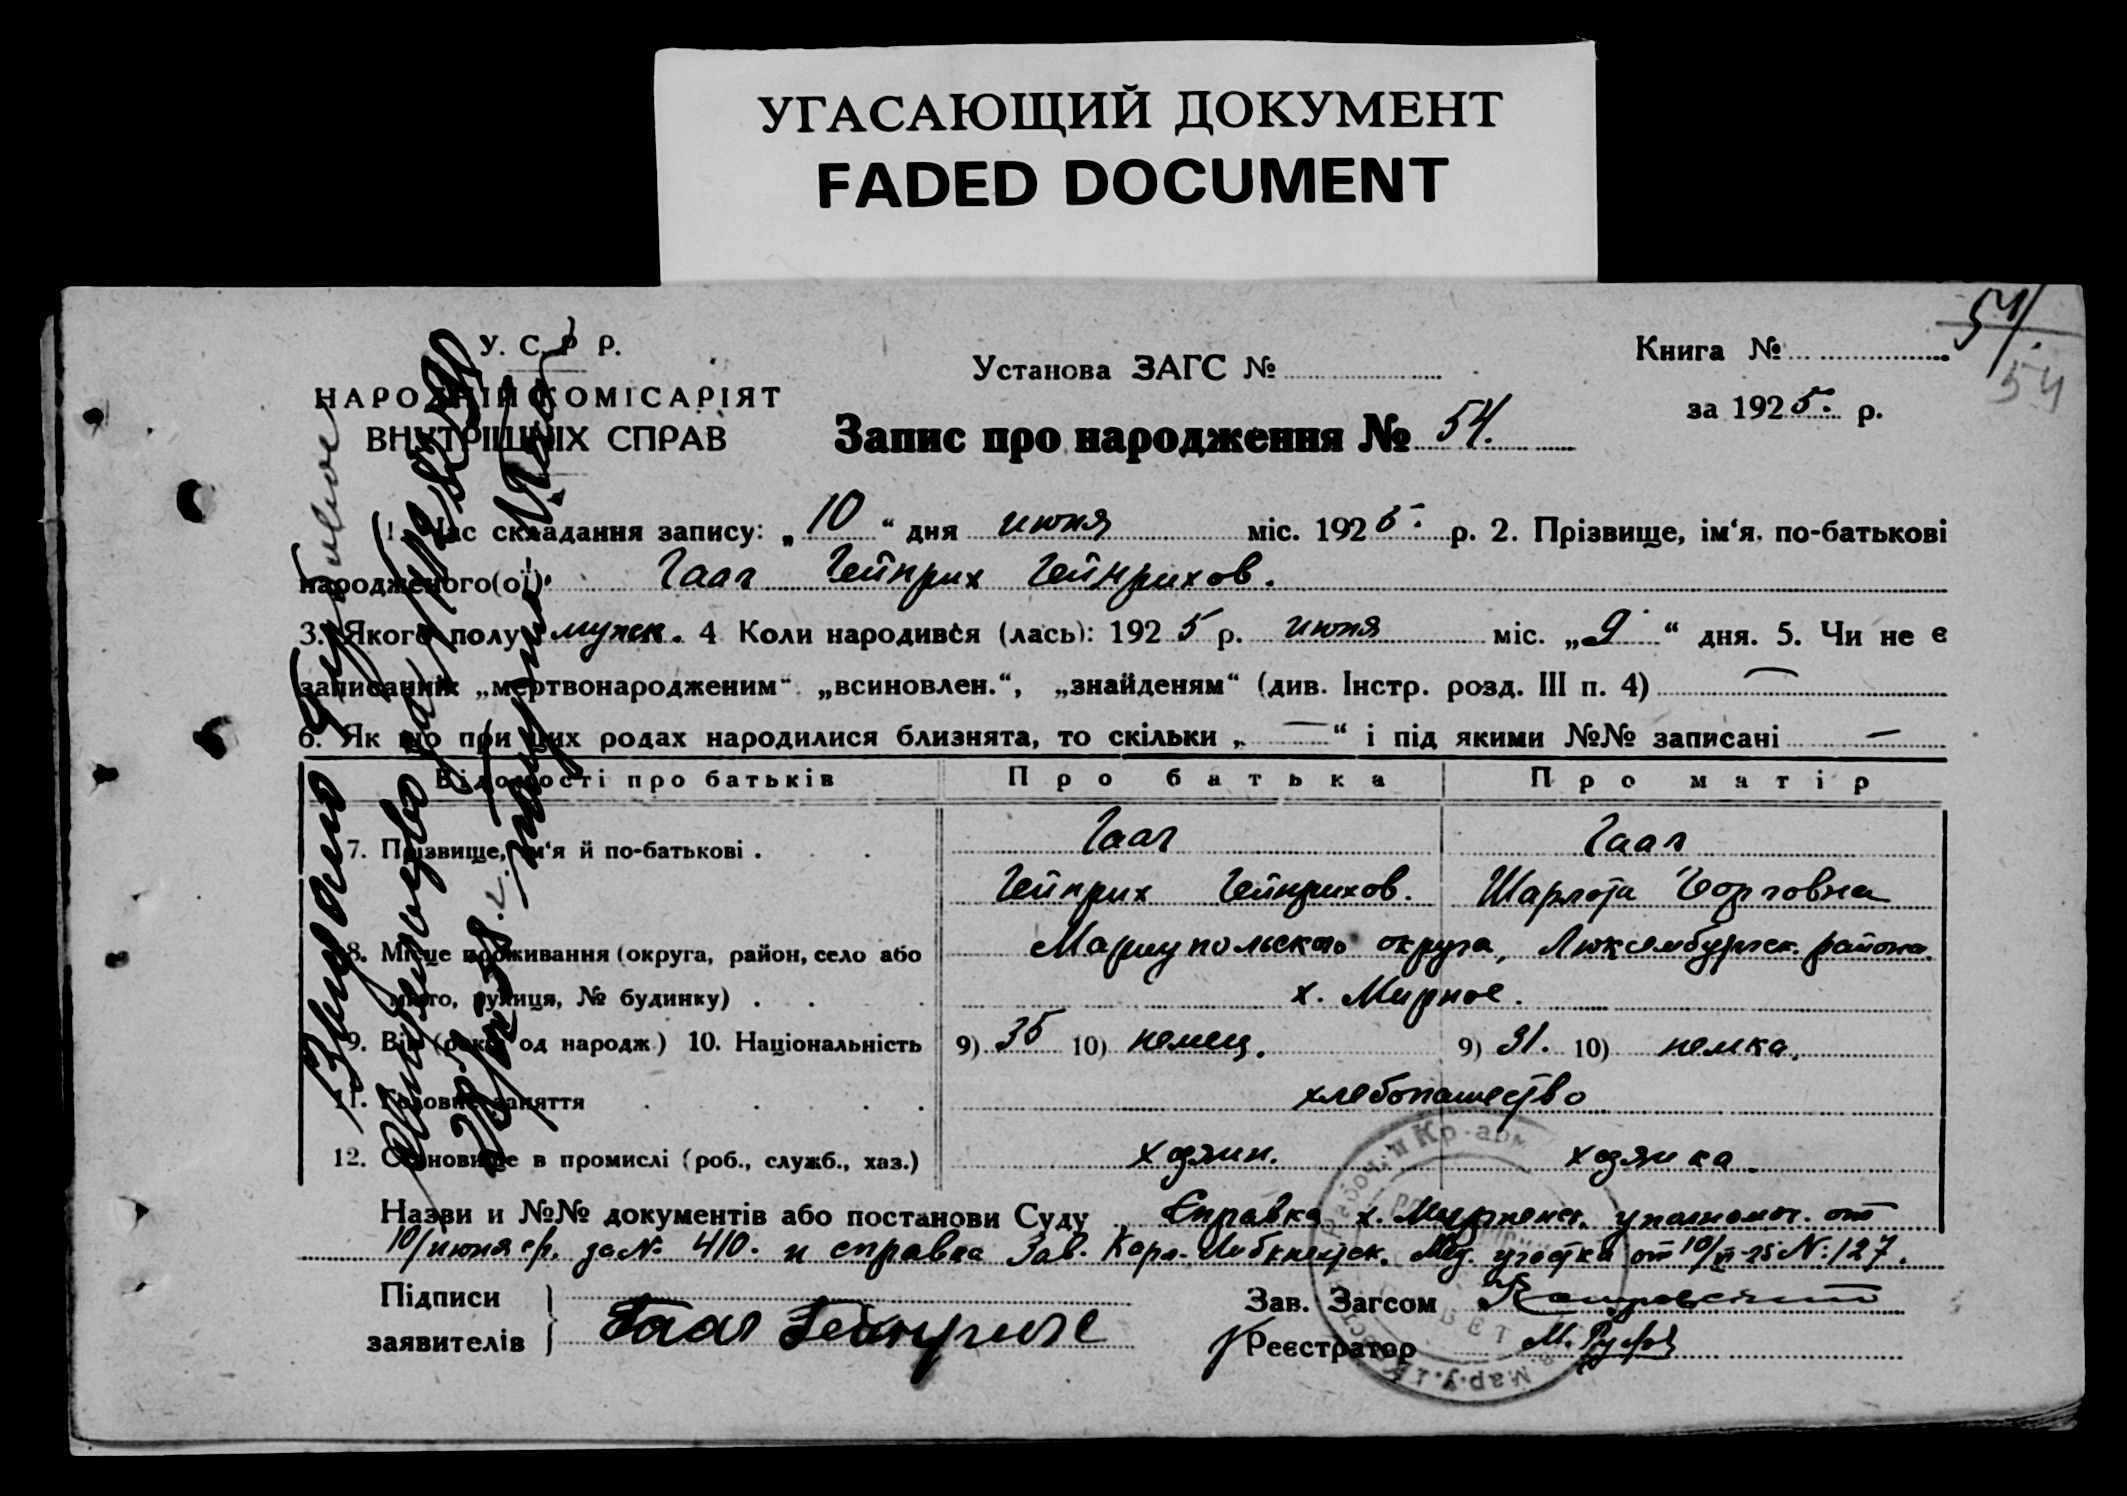 УГАСАЮЩИЙ ДОКУМЕНТ
FADED DOCUMENT
54/54
У. С. Р Р.
НАРОДНІЙ КОМІСАРІЯТ
ВНУТРІШНІХ СПРАВ
Установа ЗАГС №
Книга №
за 1925. р.
Запис про народження № 54.
1. Час складання запису: „10“ дня июня міс. 1925. р. 2. Прізвище, ім‘я, по-батькові
народженого(ої). Гааг Гейнрих Гейнрихов.
3. Якого полу мужск. 4 Коли народився (лась): 1925 р. июня міс. „9“ дня. 5. Чи не є
записанніх „мертвонародженим“. „всиновлен.“, „знайденям“ (див. Інстр. розд. III п. 4) —
6. Як що при цих родах народилися близнята, то скільки „—“ і під якими №№ записані —
Відомості про батьків Про батька Про матір
7. Прізвище, ім‘я й по-батькові . Гааг Гааг
Гейнрих Гейнрихов. Шарлота Георговна
8. Місце проживання (округа, район, село або Мариупольского округа, Люксембургск. района.
місто, вулиця, № будинку) . х. Мирное.
9. Вік (років од народж) 10. Національність 9) 35 10) немец. 9) 31. 10) немка.
11. Головне заняття хлебопашество
12. Становище в промислі (роб., служб., хаз.) хозяин. хозяйка.
Назви и №№ документів або постанови Суду Справка х. Мирненск. уполномоч. от
10/июня с/г. за № 410. и справка Зав. Карл-Либкнехтск. Мед. участка от 10/VI-25 №: 127.
Підписи
заявителів
Гааг Гейнрих
Зав. Загсом
Реєстратор
Выдано